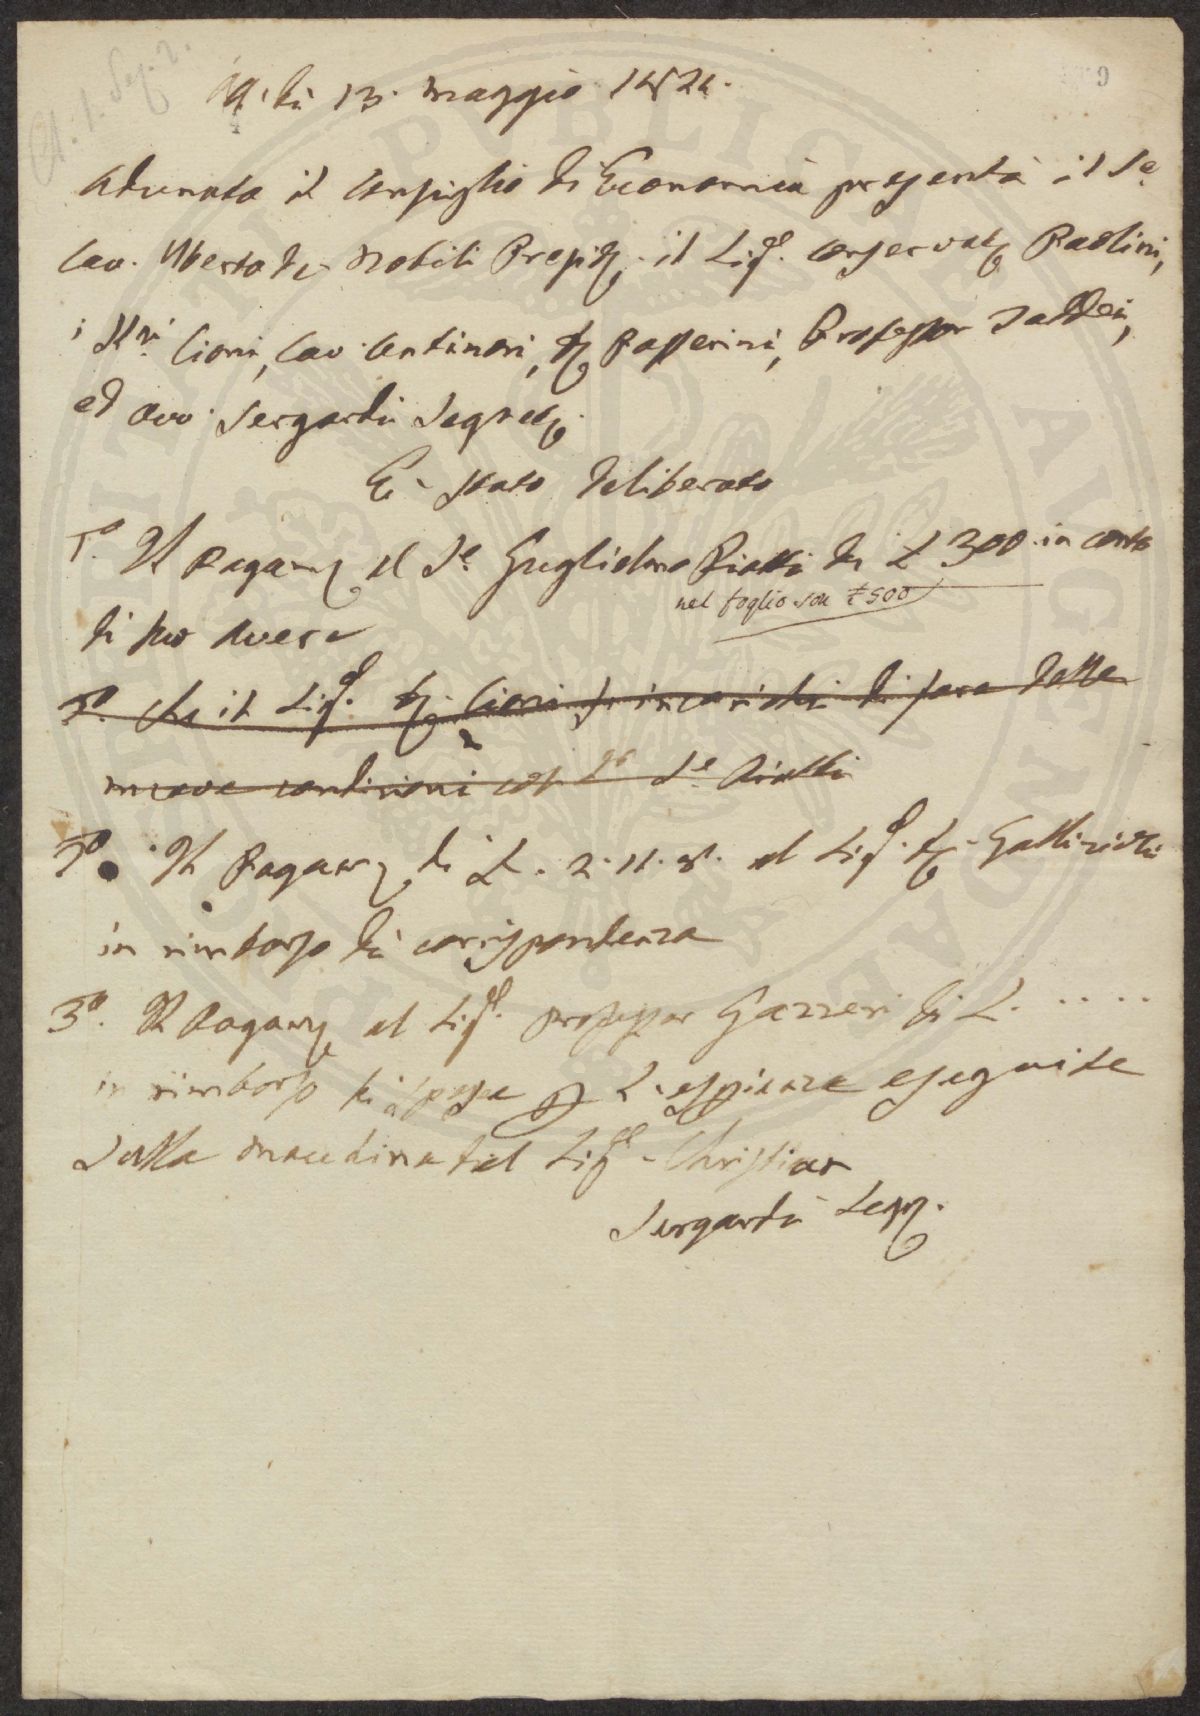 A dì 13. Maggio 1824.
Adunato il Consiglio di Economia presenti il Sr.
Cav. Uberto de Nobili Presid. il Sigr. Conservat. Paolini,
i SSri. Cioni, Cav. Antinori, Passerini, Professor Taddei,
ed Avv. Sergardi Segret.
È stato deliberato
1º. Il Pagam. al Sr. Guglielmo Piatti di £ 300 in conto
nel foglio son £ 500
di suo avere
2º. che il Sigr. Cioni s'incarichi di fare delle
nuove condizioni Sr. Piatti
2º. Il Pagam. di £. 2.11.8. al Sigr. Gallizioli
in rimborso di corrispondenza
3º. Il Pagam. al Sigr. professor Gazzeri di £. . . . .
in rimborso di spese L'esperienze eseguite
sulla macchina del Sigr. Christian
Sergardi Segr.
A. 1. Sez. 2.